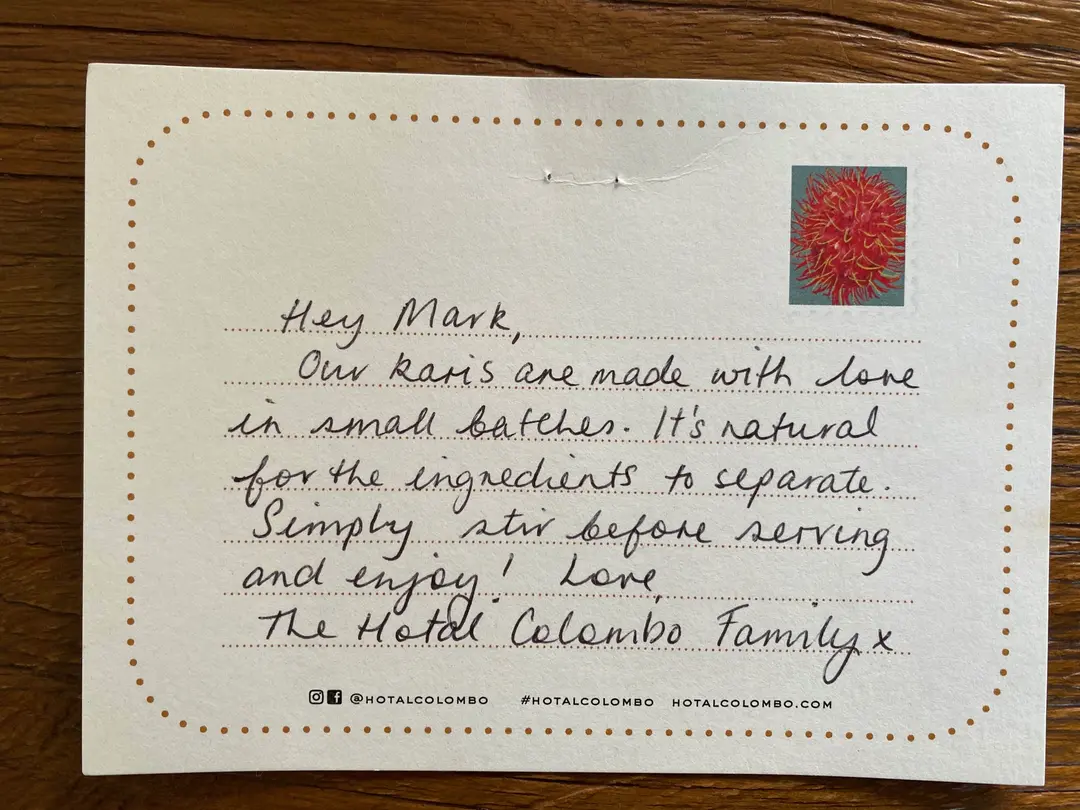 Hey Mark,
Our karis are made with love
in small batches. It's natural
for the ingredients to separate.
Simply stir before serving
and enjoy! Love,
The Hotal Colombo Family x
@HOTALCOLOMBO #HOTALCOLOMBO HOTALCOLOMBO.COM